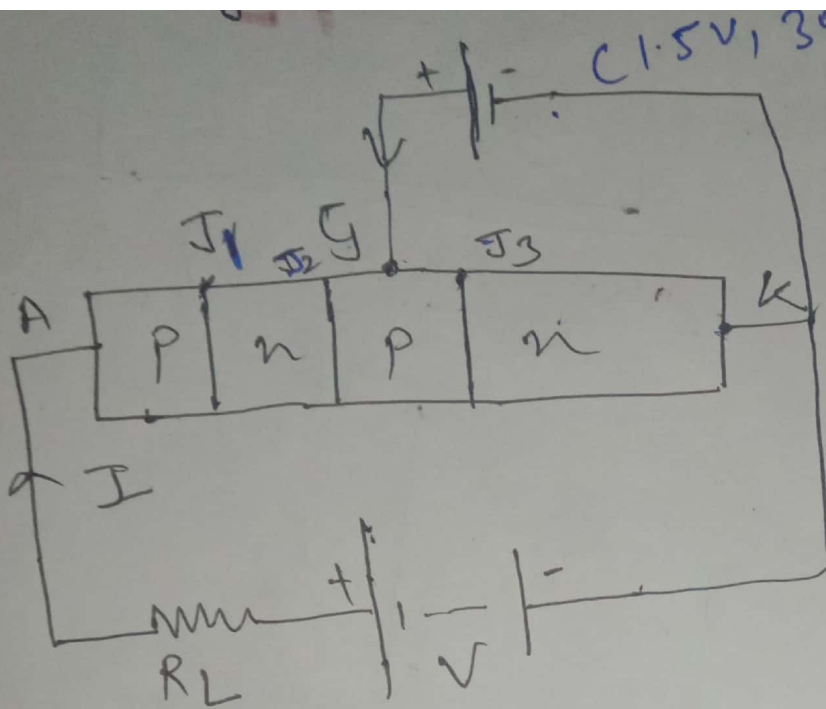 + - (1.5V, 3
J1 J2 G J3
A p n p n K
I
+ -
RL V